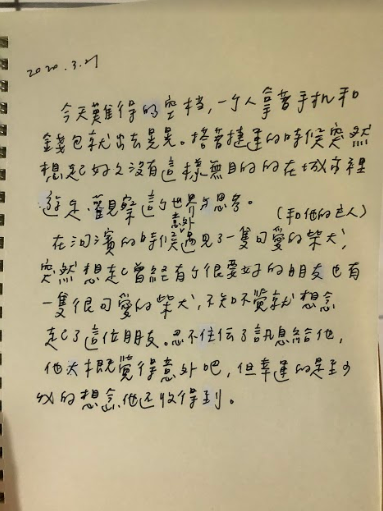 2020.3.21
今天難得的空档，一个人拿著手机和
錢包就出去晃晃。搭著捷運的時候突然
想起好久沒有這樣無目的的在城市裡
遊走，觀察這个世界与思考。
意外 （和他的主人）
在河濱的時候遇見了一隻可愛的柴犬，
突然想起曾經有个很要好的朋友也有
一隻很可愛的柴犬，不知不覺就想念
起了這位朋友。忍不住传了訊息給他，
他大概覺得意外吧，但幸運的是至少
我的想念他还收得到。